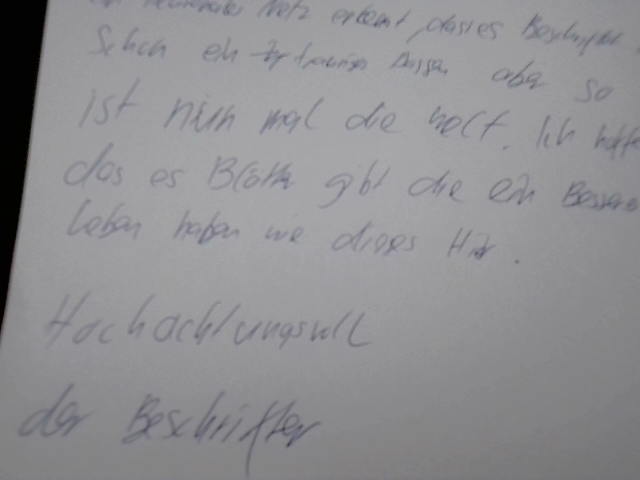 Netz erkennt dasies Beschriftet
Schon ein trauriges aber so
ist nun mal die welt. Ich hoffe
das es Blätter gibt die ein Besseres
Leben haben wie dieses Hir.
Hochachtungsvoll
der Beschrifter